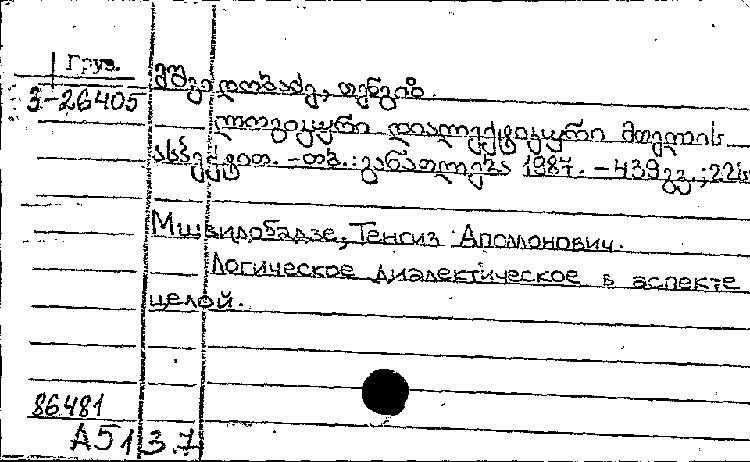 Груз.
3-26405
მშვიდობაძე, თენგიზ.
ლოგიკური დიალექტიკური მთელის
ასპექტით. - თბ.: განათლება 1987. - 439 გვ.; 22 სმ
Мшвидобадзе, Тенгиз Аполлонович.
Логическое диалектическое в аспекте
целой.
86481
А513.7